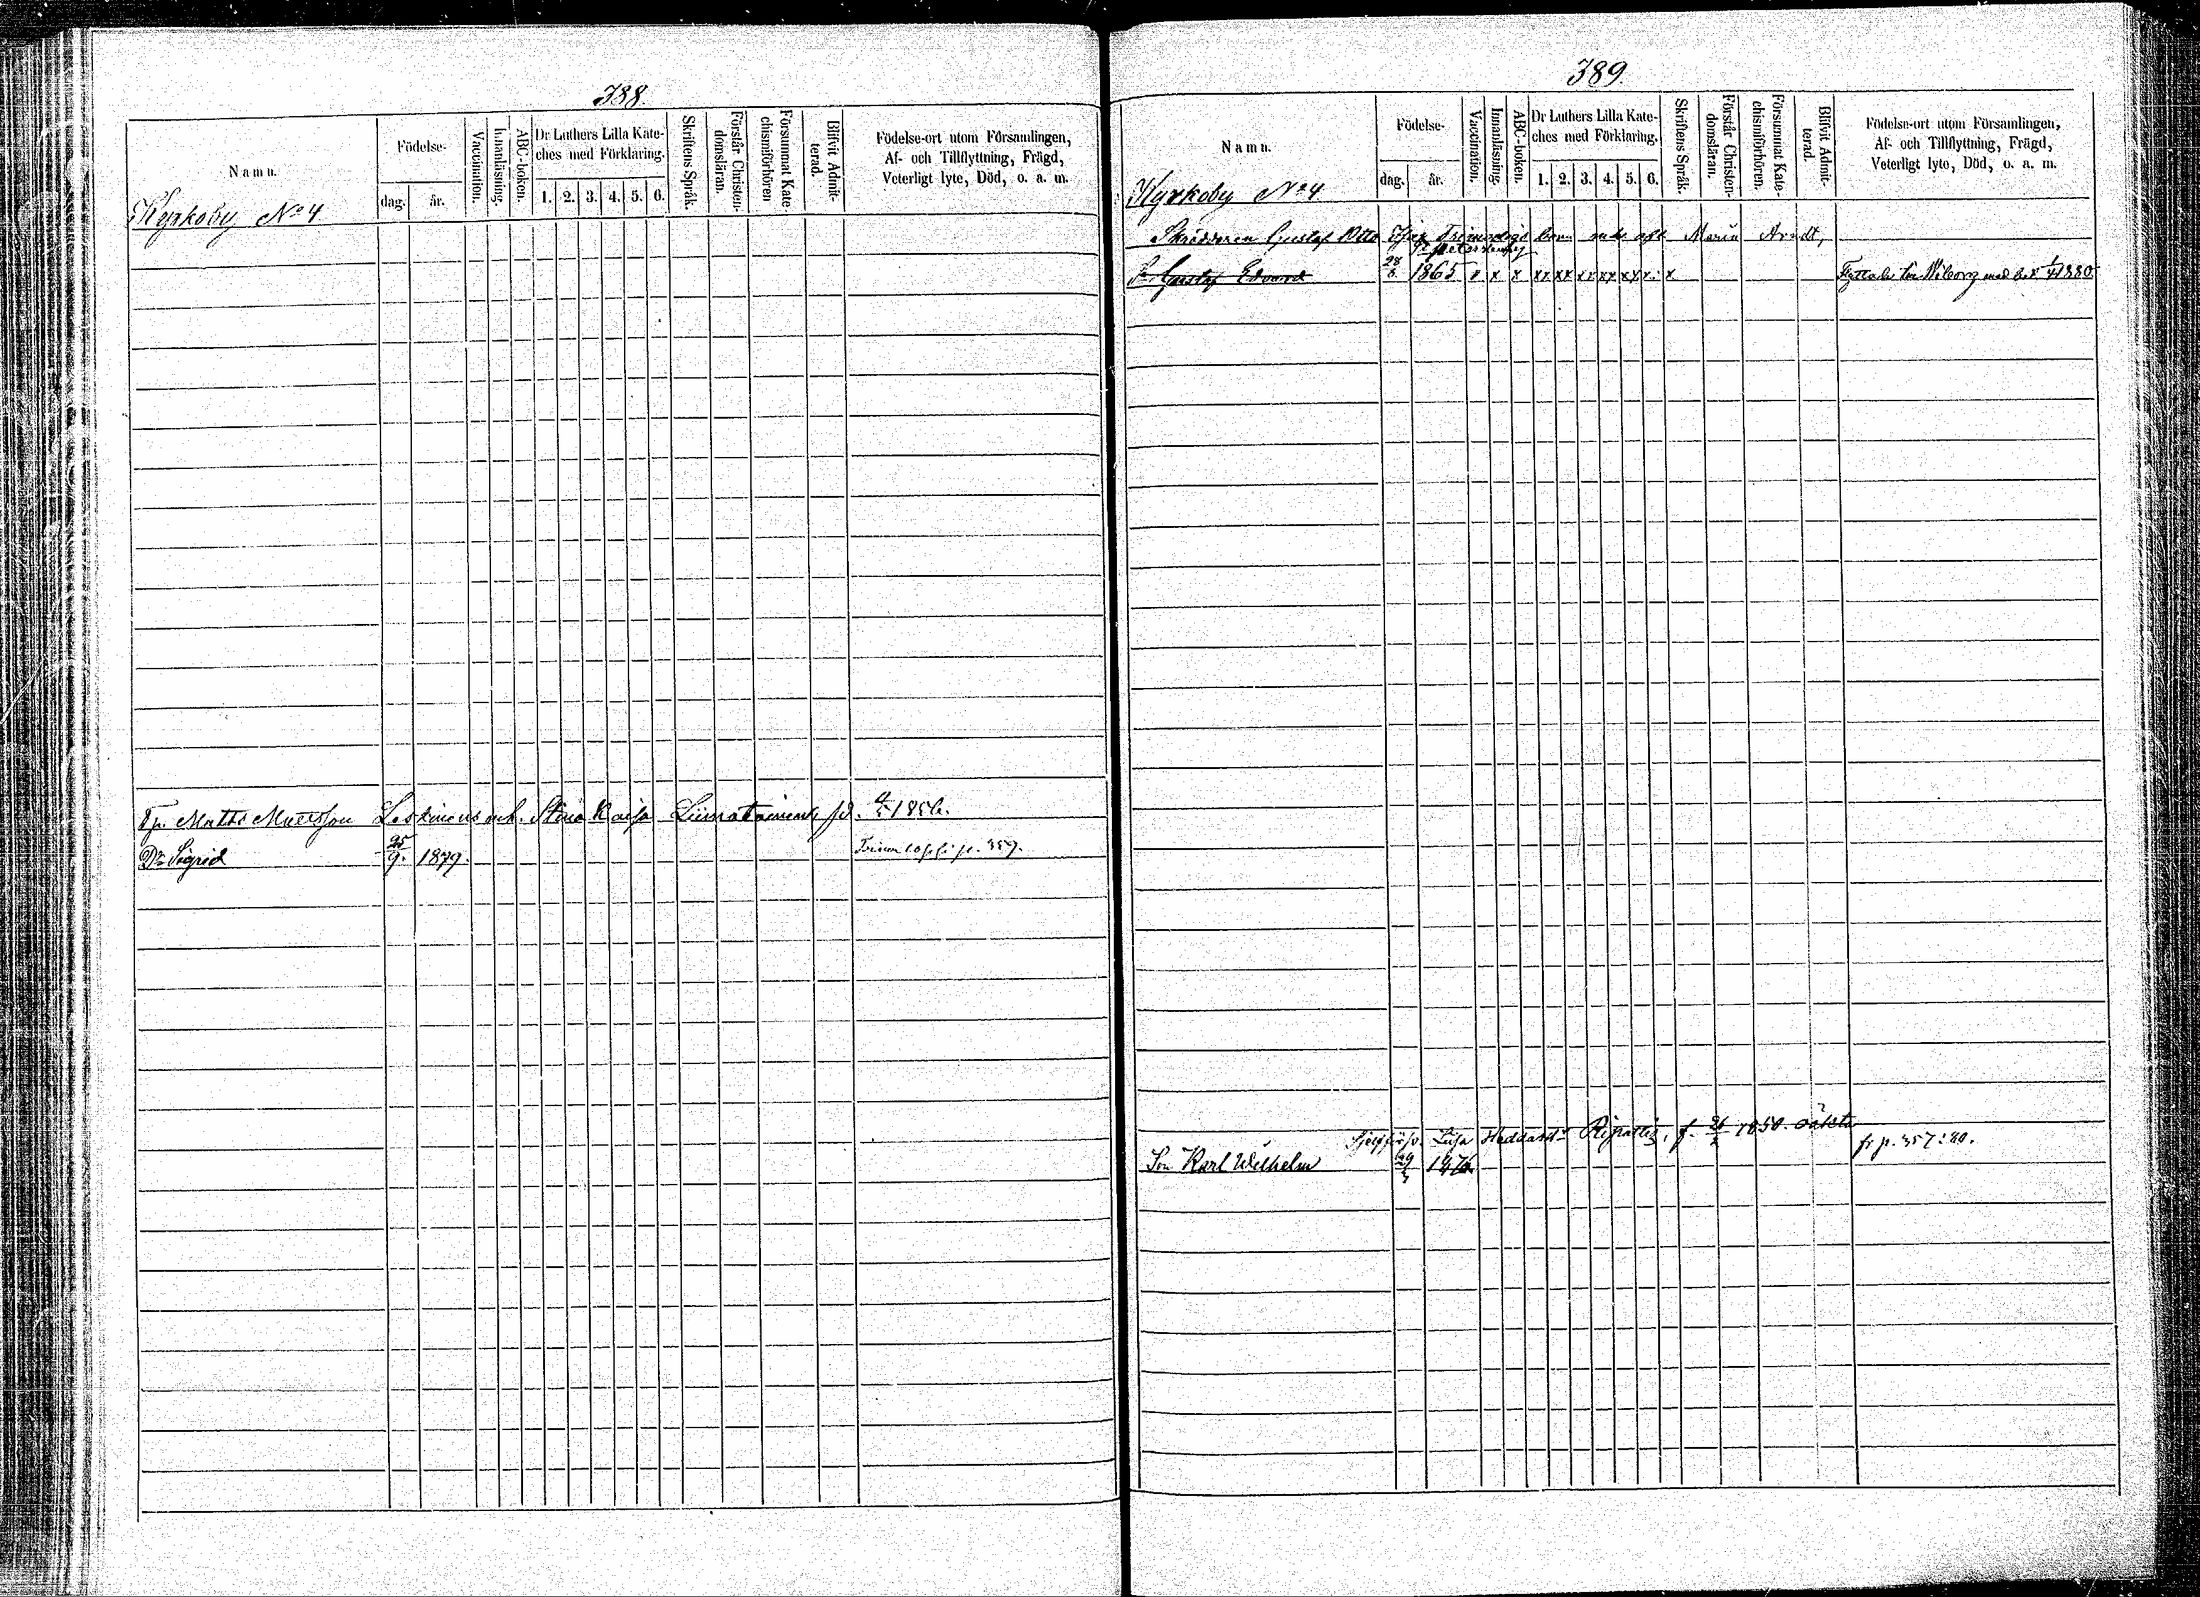 388.
Namn.
Födelse-
dag. år.
Vaccination.
Innanläsning.
ABC-boken.
Dr Luthers Lilla Kate-
ches med Förklaring.
1. 2. 3. 4. 5. 6.
Skriftens Språk.
Förstår Christen-
domsläran.
Försummat Kate-
chismiförhören
Blifvit Admit-
terad.
Födelse-ort utom Församlingen,
Af- och Tillflyttning, Frägd,
Veterligt lyte, Död, o. a. m.
Kyrkoby No 4
Matts Mattsson Leskinens enk. Stina Kaisa Liimatainens 1856.
Dr Sigrid 25/9. 1879. p. 359.
389.
Namn.
Födelse-
dag. år.
Vaccination.
Innanläsning.
ABC-boken.
Dr Luthers Lilla Kate-
ches med Förklaring.
1. 2. 3. 4. 5. 6.
Skriftens Språk.
Förstår Christen-
domsläran.
Försummat Kate-
chismiförhören.
Blifvit Admit-
terad.
Födelse-ort utom Församlingen,
Af- och Tillflyttning, Frägd,
Veterligt lyte, Död, o. a. m.
Kyrkoby No 4.
Skräddaren Gustaf Otto barn Maria Arndt,
St petersburg
Sn. Gustaf Edvard 28 1865 x x x xx xx xx xx xx x x Flyttade till Wiborg med bet. 1/4 1880
Liisa f. 1850. oäkta fr p. 357:80.
Son Karl Wilhelm 29/3 1876